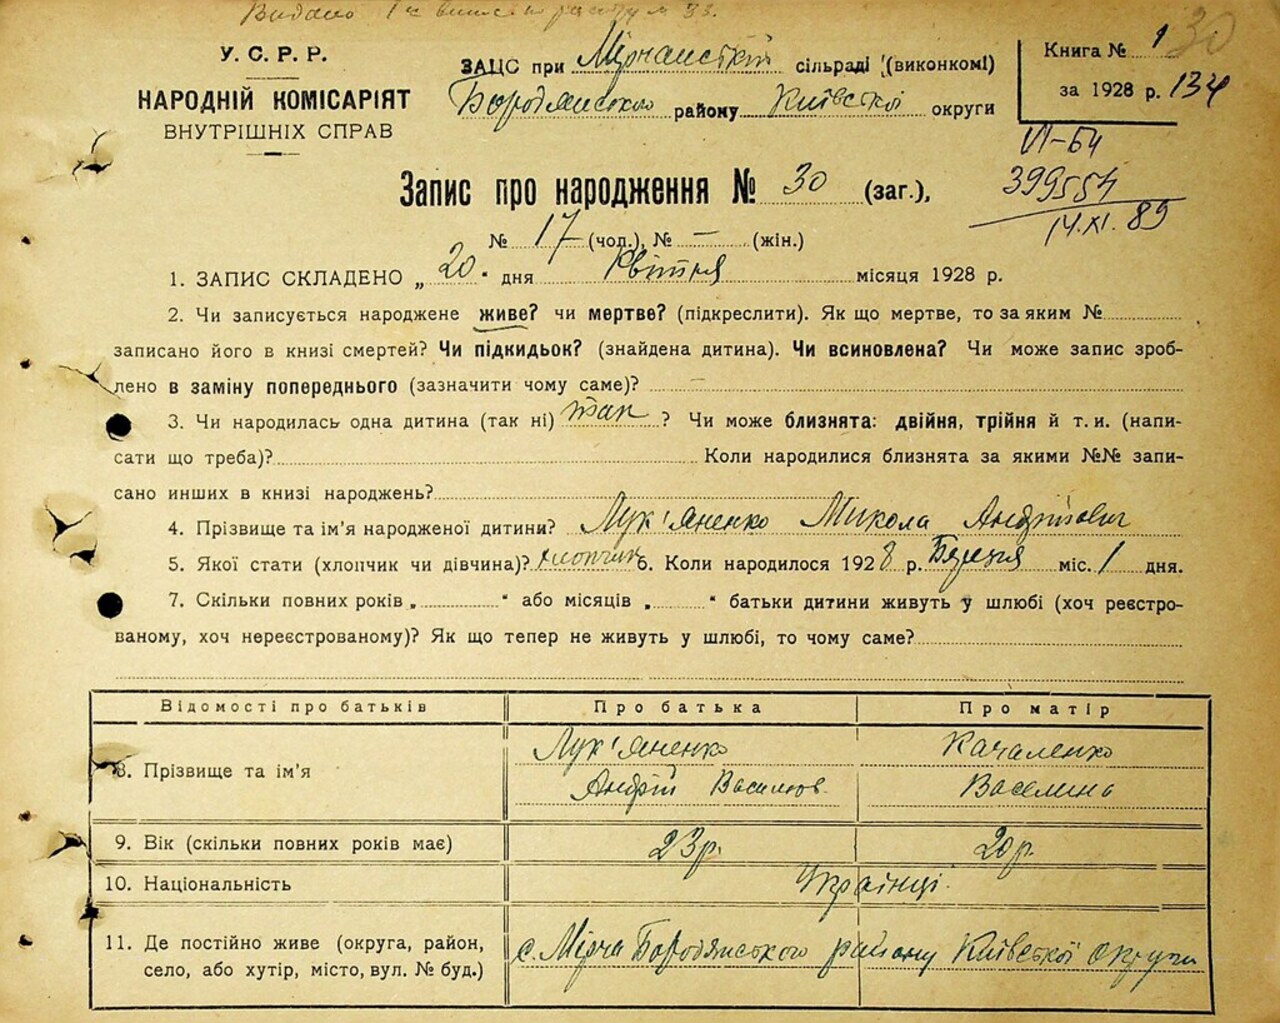 Видано
У. С. Р. Р.
НАРОДНІЙ КОМІСАРІЯТ
ВНУТРІШНІХ СПРАВ
ЗАЦС при Мірчанській сільраді (виконкомі)
Бородянського району Київської округи
Книга № 1
за 1928 р.
30
134
VI-БЧ
399554
14.XI.89
Запис про народження № 30 (заг.),
№ 17 (чол.), № — (жін.)
1. ЗАПИС СКЛАДЕНО „ 20 " дня Квітня місяця 1928 р.
2. Чи записується народжене живе? чи мертве? (підкреслити). Як що мертве, то за яким №
записано його в книзі смертей? Чи підкидьок? (знайдена дитина). Чи всиновлена? Чи може запис зроб-
лено в заміну попереднього (зазначити чому саме)? —
3. Чи народилась одна дитина (так ні) так ? Чи може близнята: двійня, трійня й т. и. (напи-
сати що треба)? Коли народилися близнята за якими №№ запи-
сано инших в книзі народжень?
4. Прізвище та ім'я народженої дитини? Лук'яненко Микола Андрійович
5. Якої стати (хлопчик чи дівчина)? хлопчик 6. Коли народилося 1928 р. Березня міс. 1 дня.
7. Скільки повних років „ " або місяців „ " батьки дитини живуть у шлюбі (хоч реєстро-
ваному, хоч нереєстрованому)? Як що тепер не живуть у шлюбі, то чому саме?
Відомості про батьків Про батька Про матір
8. Прізвище та ім'я Лук'яненко Андрій Васильов. Качаленко Василина
9. Вік (скільки повних років має) 23 р. 20 р.
10. Національність Українці.
11. Де постійно живе (округа, район,
село, або хутір, місто, вул. № буд.) с. Мірча Бородянського району Київської округи